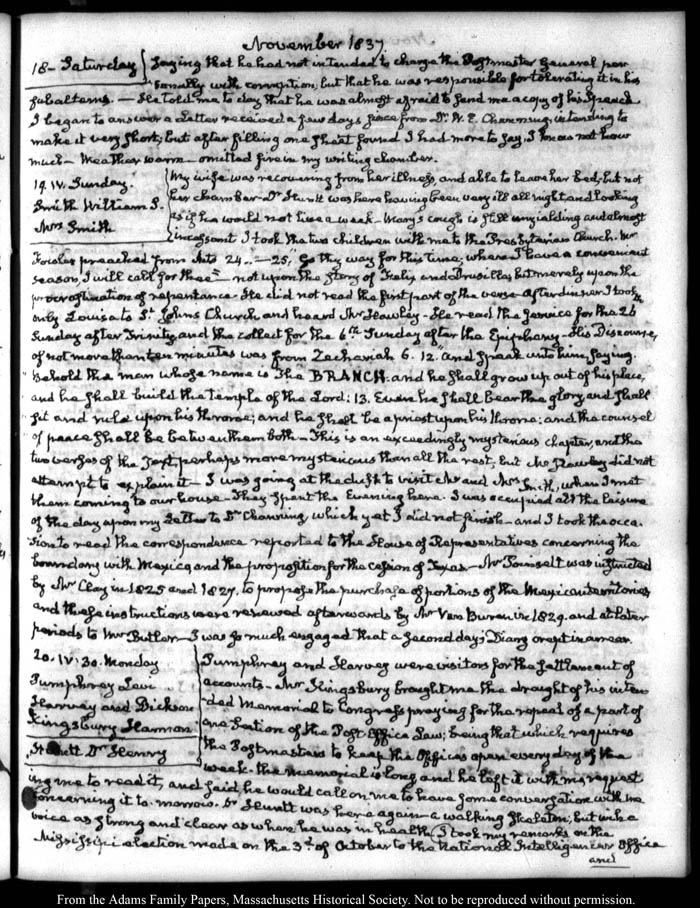 November 1837.
18– Saturday
saying that he had not intended to charge the Postmaster General per
sonally with corruption, but that he was responsible for tolerating it in his
subalterns. — He told me to day that he was almost afraid to send me a copy of his Speech
I began to answer a Letter received a few days since from Dr. W. E. Channing, intending to
make it very short, but after filling one sheet found I had more to say, I know not how
much – Weather warm – omitted fire in my writing chamber.
19. IV. Sunday.
Smith William S.
Mrs Smith
My wife was recovering from her illness, and able to leave her bed, but not
her chamber – Dr Huntt was here having been very ill all night and looking
as if he would not live a week – Mary's cough is still unyielding and almost
incessant I took the two children with me to the Presbyterian Church. Mr
Fowler preached from Acts 24. – 25, "Go thy way for this time; when I have a convenient
season, I will call for thee" – not upon the story of Felix and Drusilla, but merely upon the
procrastination of repentance. He did not read the first part of the verse – After dinner I took
only Louisa to St. Johns Church and heard Mr Hawley – He read the service for the 26
Sunday after Trinity, and the collect for the 6th Sunday after the Epiphany – His Discourse,
of not more than ten minutes was from Zechariah 6. 12. "and speak unto him, saying.
Behold the man whose name is The BRANCH: and he shall grow up out of his place,
and he shall build the temple of the Lord: 13. Even he shall bear the glory, and shall
sit and rule upon his throne; and he shall be a priest upon his throne: and the counsel
of peace shall be between them both – This is an exceedingly mysterious chapter, and the
two verses of the Text, perhaps more mysterious than all the rest, but Mr Hawley did not
attempt to explain it – I was going at the dusk to visit Mr and Mrs Smith, when I met
them coming to our house – They spent the Evening here. I was occupied all the leisure
of the day upon my Letter to Dr Channing which yet I did not finish – and I took the occa-
sion to read the correspondence reported to the House of Representatives concerning the
boundary with Mexico and the proposition for the cession of Texas – Mr Poinsett was instructed
by Mr Clay in 1825 and 1827, to propose the purchase of portions of the Mexican territories
and these instructions were renewed afterwards by Mr Van Buren in 1829. and at later
periods to Mr Butler – I was so much engaged that a second day's Diary crept in arrear.
20. IV: 30. Monday
Pumphrey Levi
Harvey and Dickson
Kingsbury Harmon
Huntt Dr Henry
Pumphrey and Harvey were visitors for the settlement of
accounts – Mr Kingsbury brought me the draught of his inten-
ded Memorial to Congress praying for the repeal of a part of
one Section of the Post Office Law; being that which requires
the Postmasters to keep the Offices open every day of the
week – the memorial is long and he left it with me, request
ing me to read it, and said he would call on me to have some conversation with me
concerning it to-morrow. Dr Huntt was here again – a walking skeleton, but with a
voice as strong and clear as when he was in health. I took my remarks on the
Mississippi election made on the 3d of October to the National Intelligencer Office
and
From the Adams Family Papers, Massachusetts Historical Society. Not to be reproduced without permission.